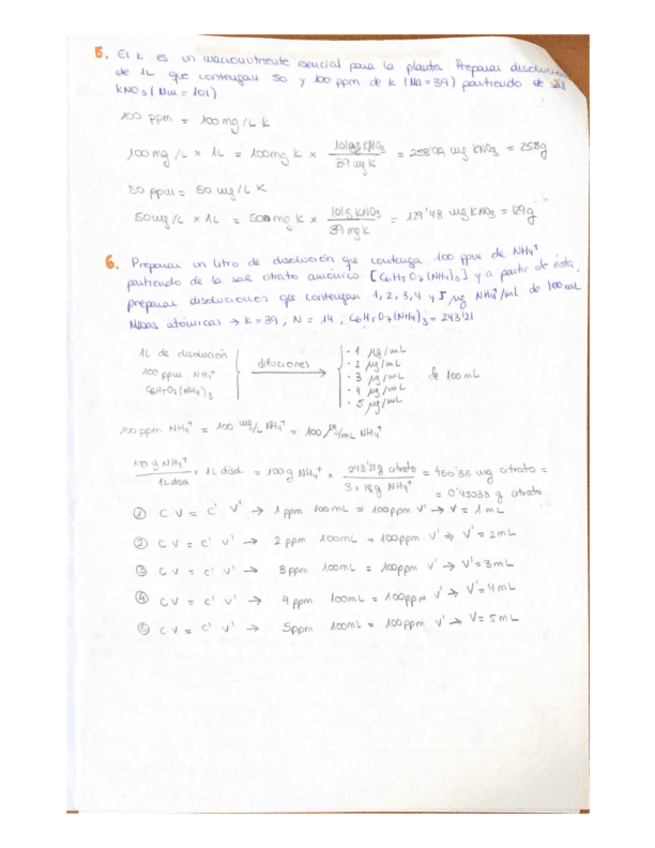 5. El K es un macronutriente esencial para la planta. Preparar disoluciones
de 1L que contengan 50 y 100 ppm de K (Ma=39) partiendo de sal
KNO3 (Mm = 101)
100 ppm = 100 mg/L K
100 mg/L × 1L = 100mg K × 101g KNO3 / 39 mg K = 258'09 mg KNO3 = 258g
50 ppm = 50 mg/L K
50mg/L × 1L = 50mg K × 101g KNO3 / 39 mg K = 129'48 mg KNO3 = 129g
6. Preparar un litro de disolución que contenga 100 ppm de NH4+
partiendo de la sal citrato amónico [C6H5O7(NH4)3] y a partir de ésta,
preparar disoluciones que contengan 1, 2, 3, 4 y 5 µg NH4+/ml de 100mL
Masas atómicas → K=39; N = 14, C6H5O7(NH4)3 = 243'21
1L de disolución
100 ppm NH4+
C6H5O7(NH4)3
diluciones
· 1 µg/mL
· 2 µg/mL
· 3 µg/mL
· 4 µg/mL
· 5 µg/mL
de 100mL
100 ppm NH4+ = 100 mg/L NH4+ = 100 µg/mL NH4+
100 g NH4+ / 1L disol × 1L disol = 100g NH4+ × 243'21g citrato / 3 × 18g NH4+ = 450'33 mg citrato =
= 0'45033 g citrato
① C V = C' V' → 1 ppm 100mL = 100ppm V' → V = 1 mL
② C V = C' V' → 2 ppm 100mL = 100ppm V' → V' = 2mL
③ C V = C' V' → 3ppm 100mL = 100ppm V' → V' = 3mL
④ C V = C' V' → 4 ppm 100mL = 100ppm V' → V' = 4mL
⑤ C V = C' V' → 5ppm 100mL = 100ppm V' → V = 5mL